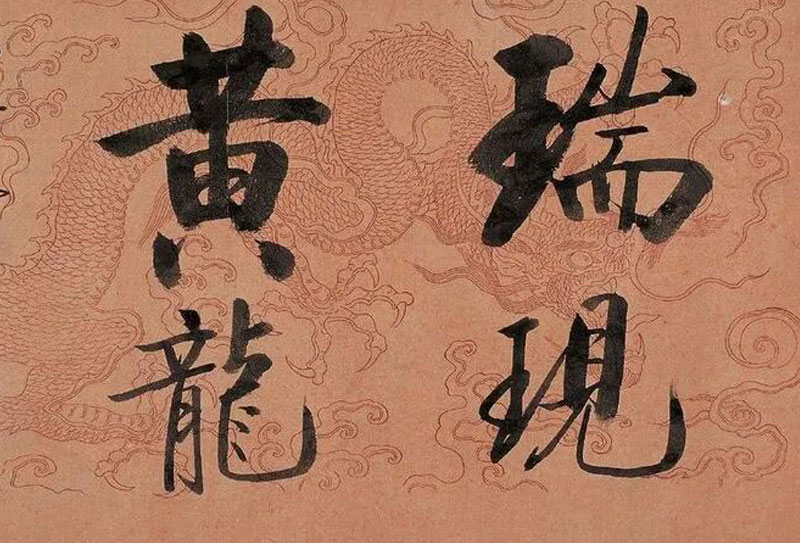 瑞現
黃龍